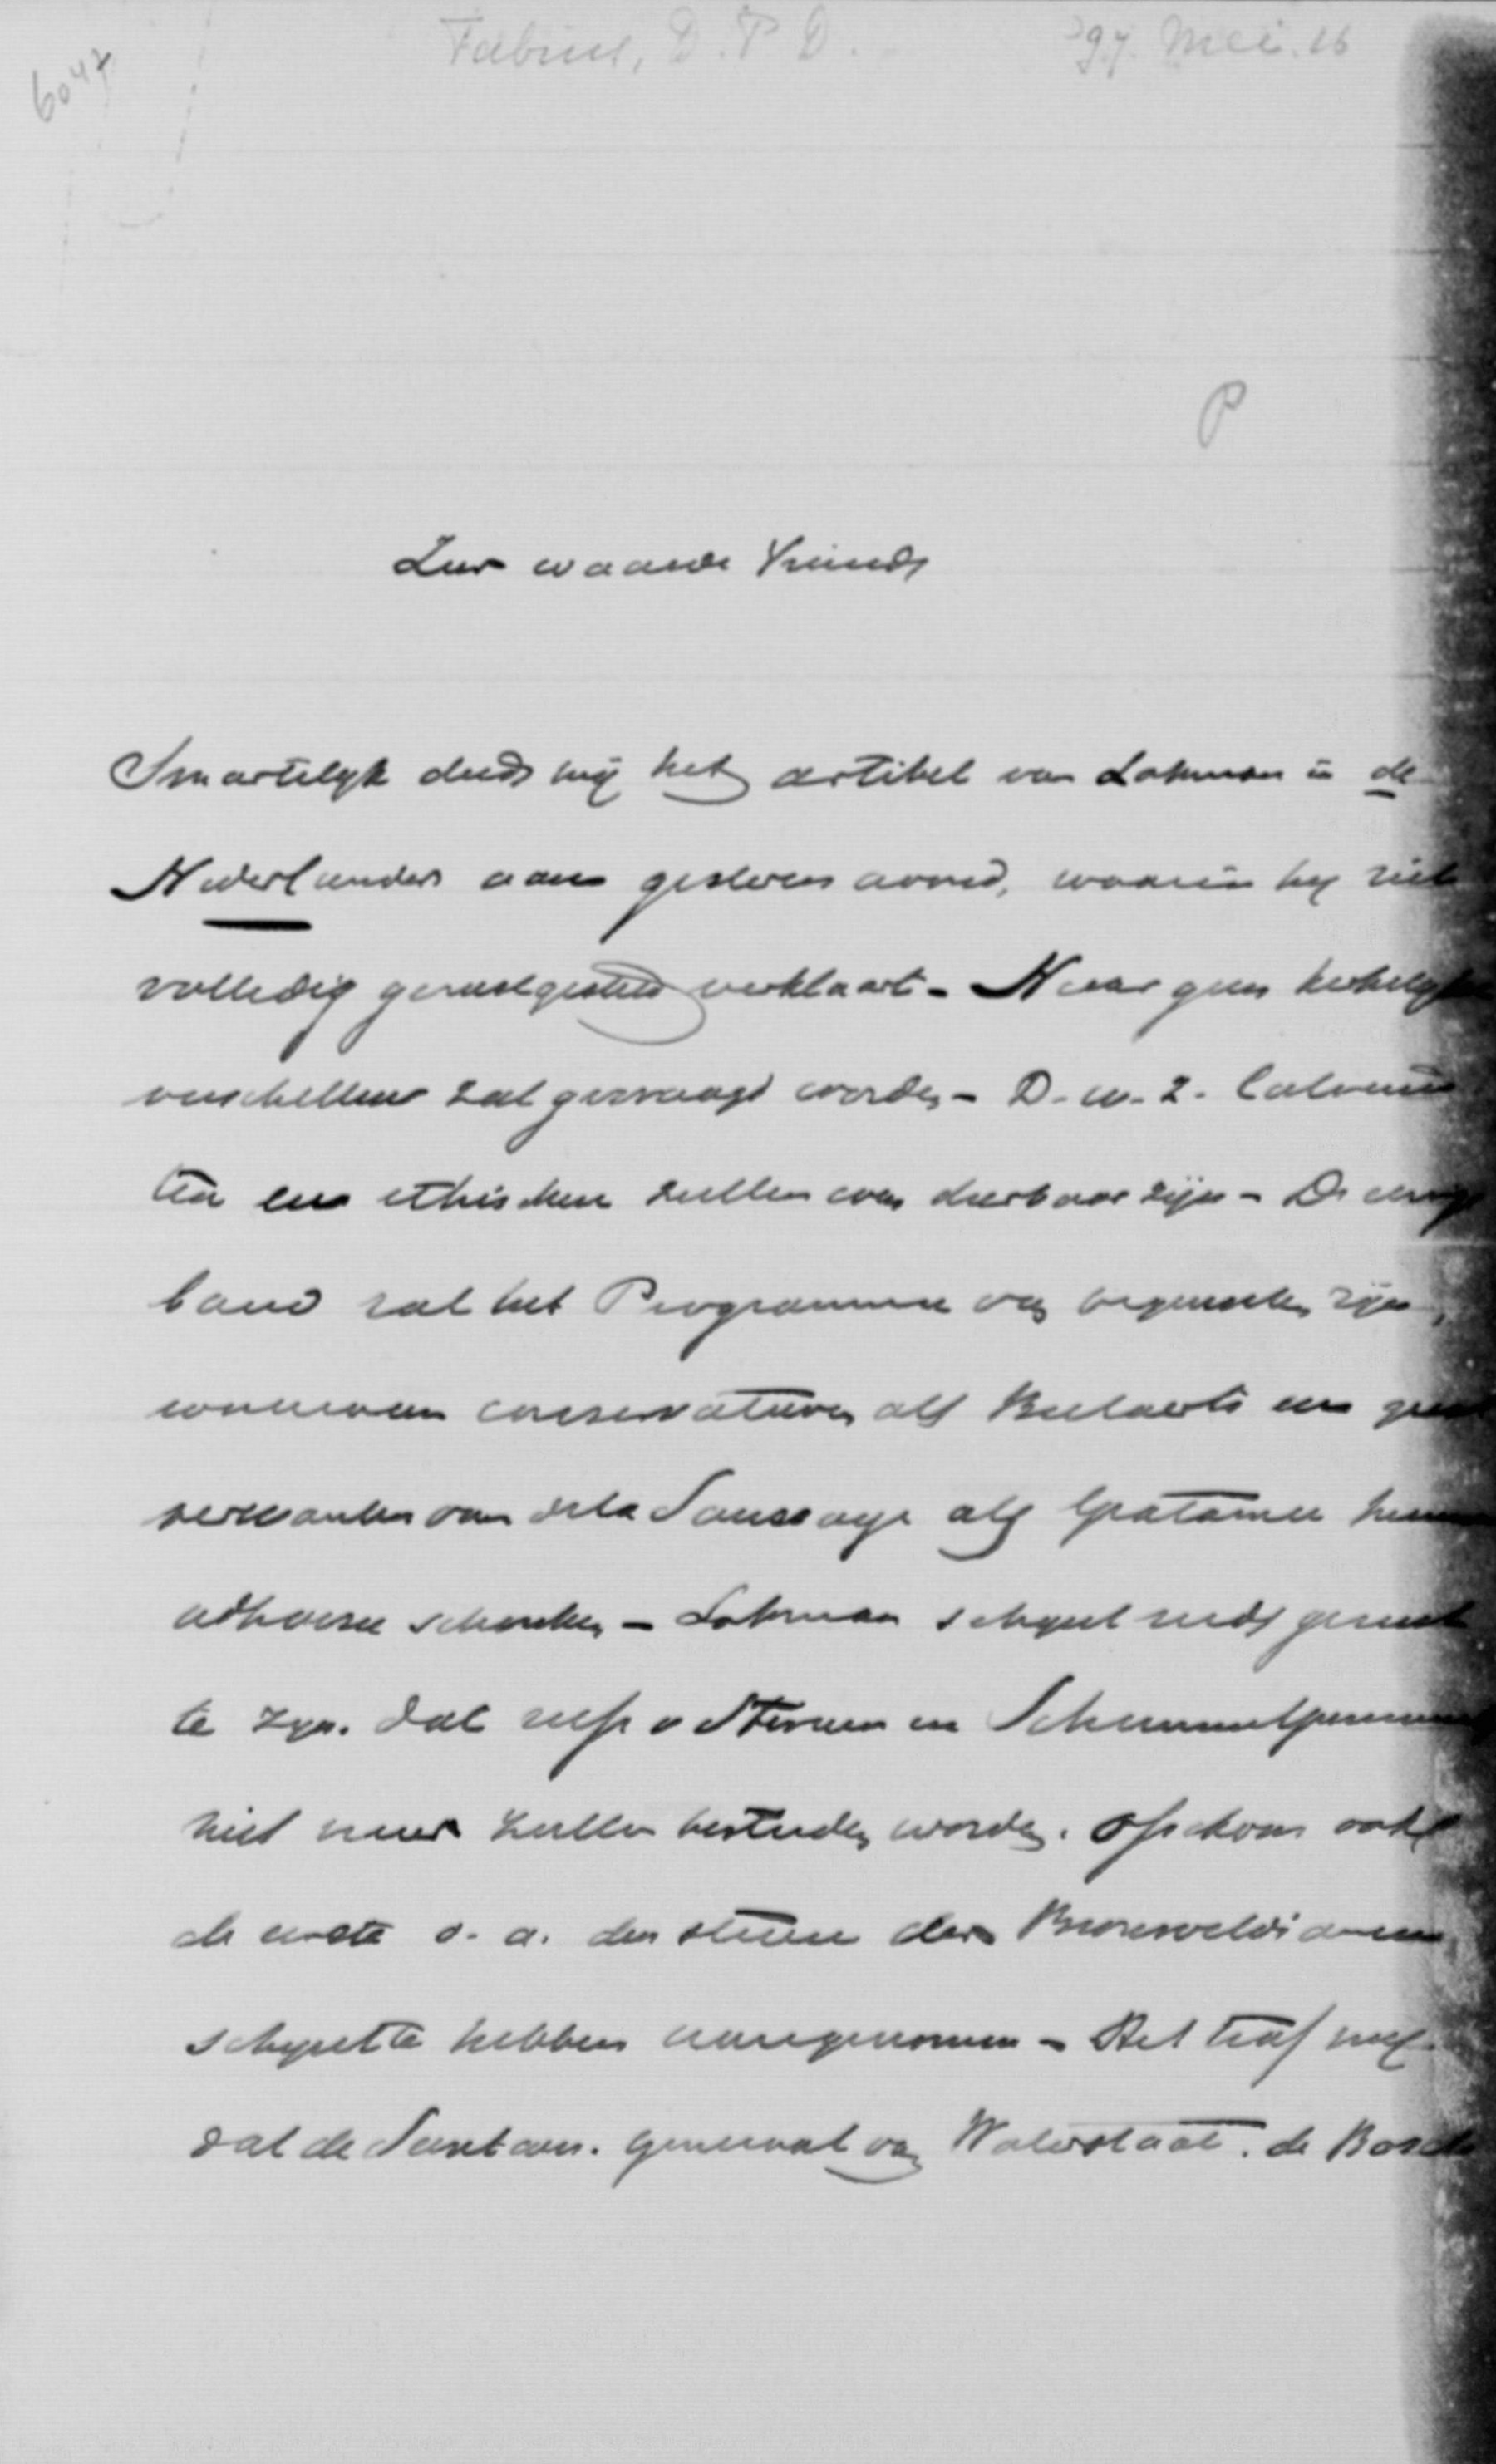 6047
Fabius, D.P.D. 97. Mei. 26
P
Zeer waarde Vriend
Smartelyk deed my het artikel van Lohman in de
Nederlander van gisteren avond, waarin hy zich
volledig gerustgesteld verklaart - Naar geen kerkelyke
verschillen zal gevraagd worden - D. w. z. Calvinis
ten en ethischen zullen even dierbaar zijn - De eenige
band zal het Programma van beginselen zijn,
waaraan conservatieven als Beelaerts en geest
verwanten van de la Saussaye als Gratama hun
adhaesie schenken - Lohman schynt reeds gerust
te zyn, dat resp v Sternen en Schimmelpenninck
niet meer zullen bestreden worden. Ofschoon ook
de eerste o. a. den steun der Bronsveldianen
schynt te hebben aangenomen - Het trof my
dat de Luit generaal van Waterstaat, de Bosch